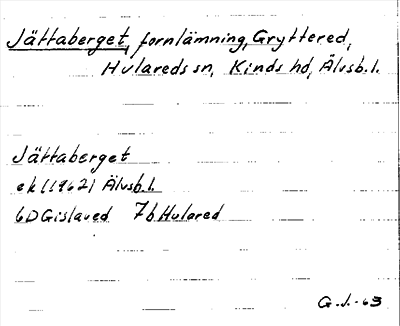 Jättaberget, fornlämning, Gryttered,
Hulareds sn, Kinds hd, Älvsb.l.
Jättaberget
ek (1962) Älvsb.l.
6D Gislaved 7b Hulared
G.J.-63